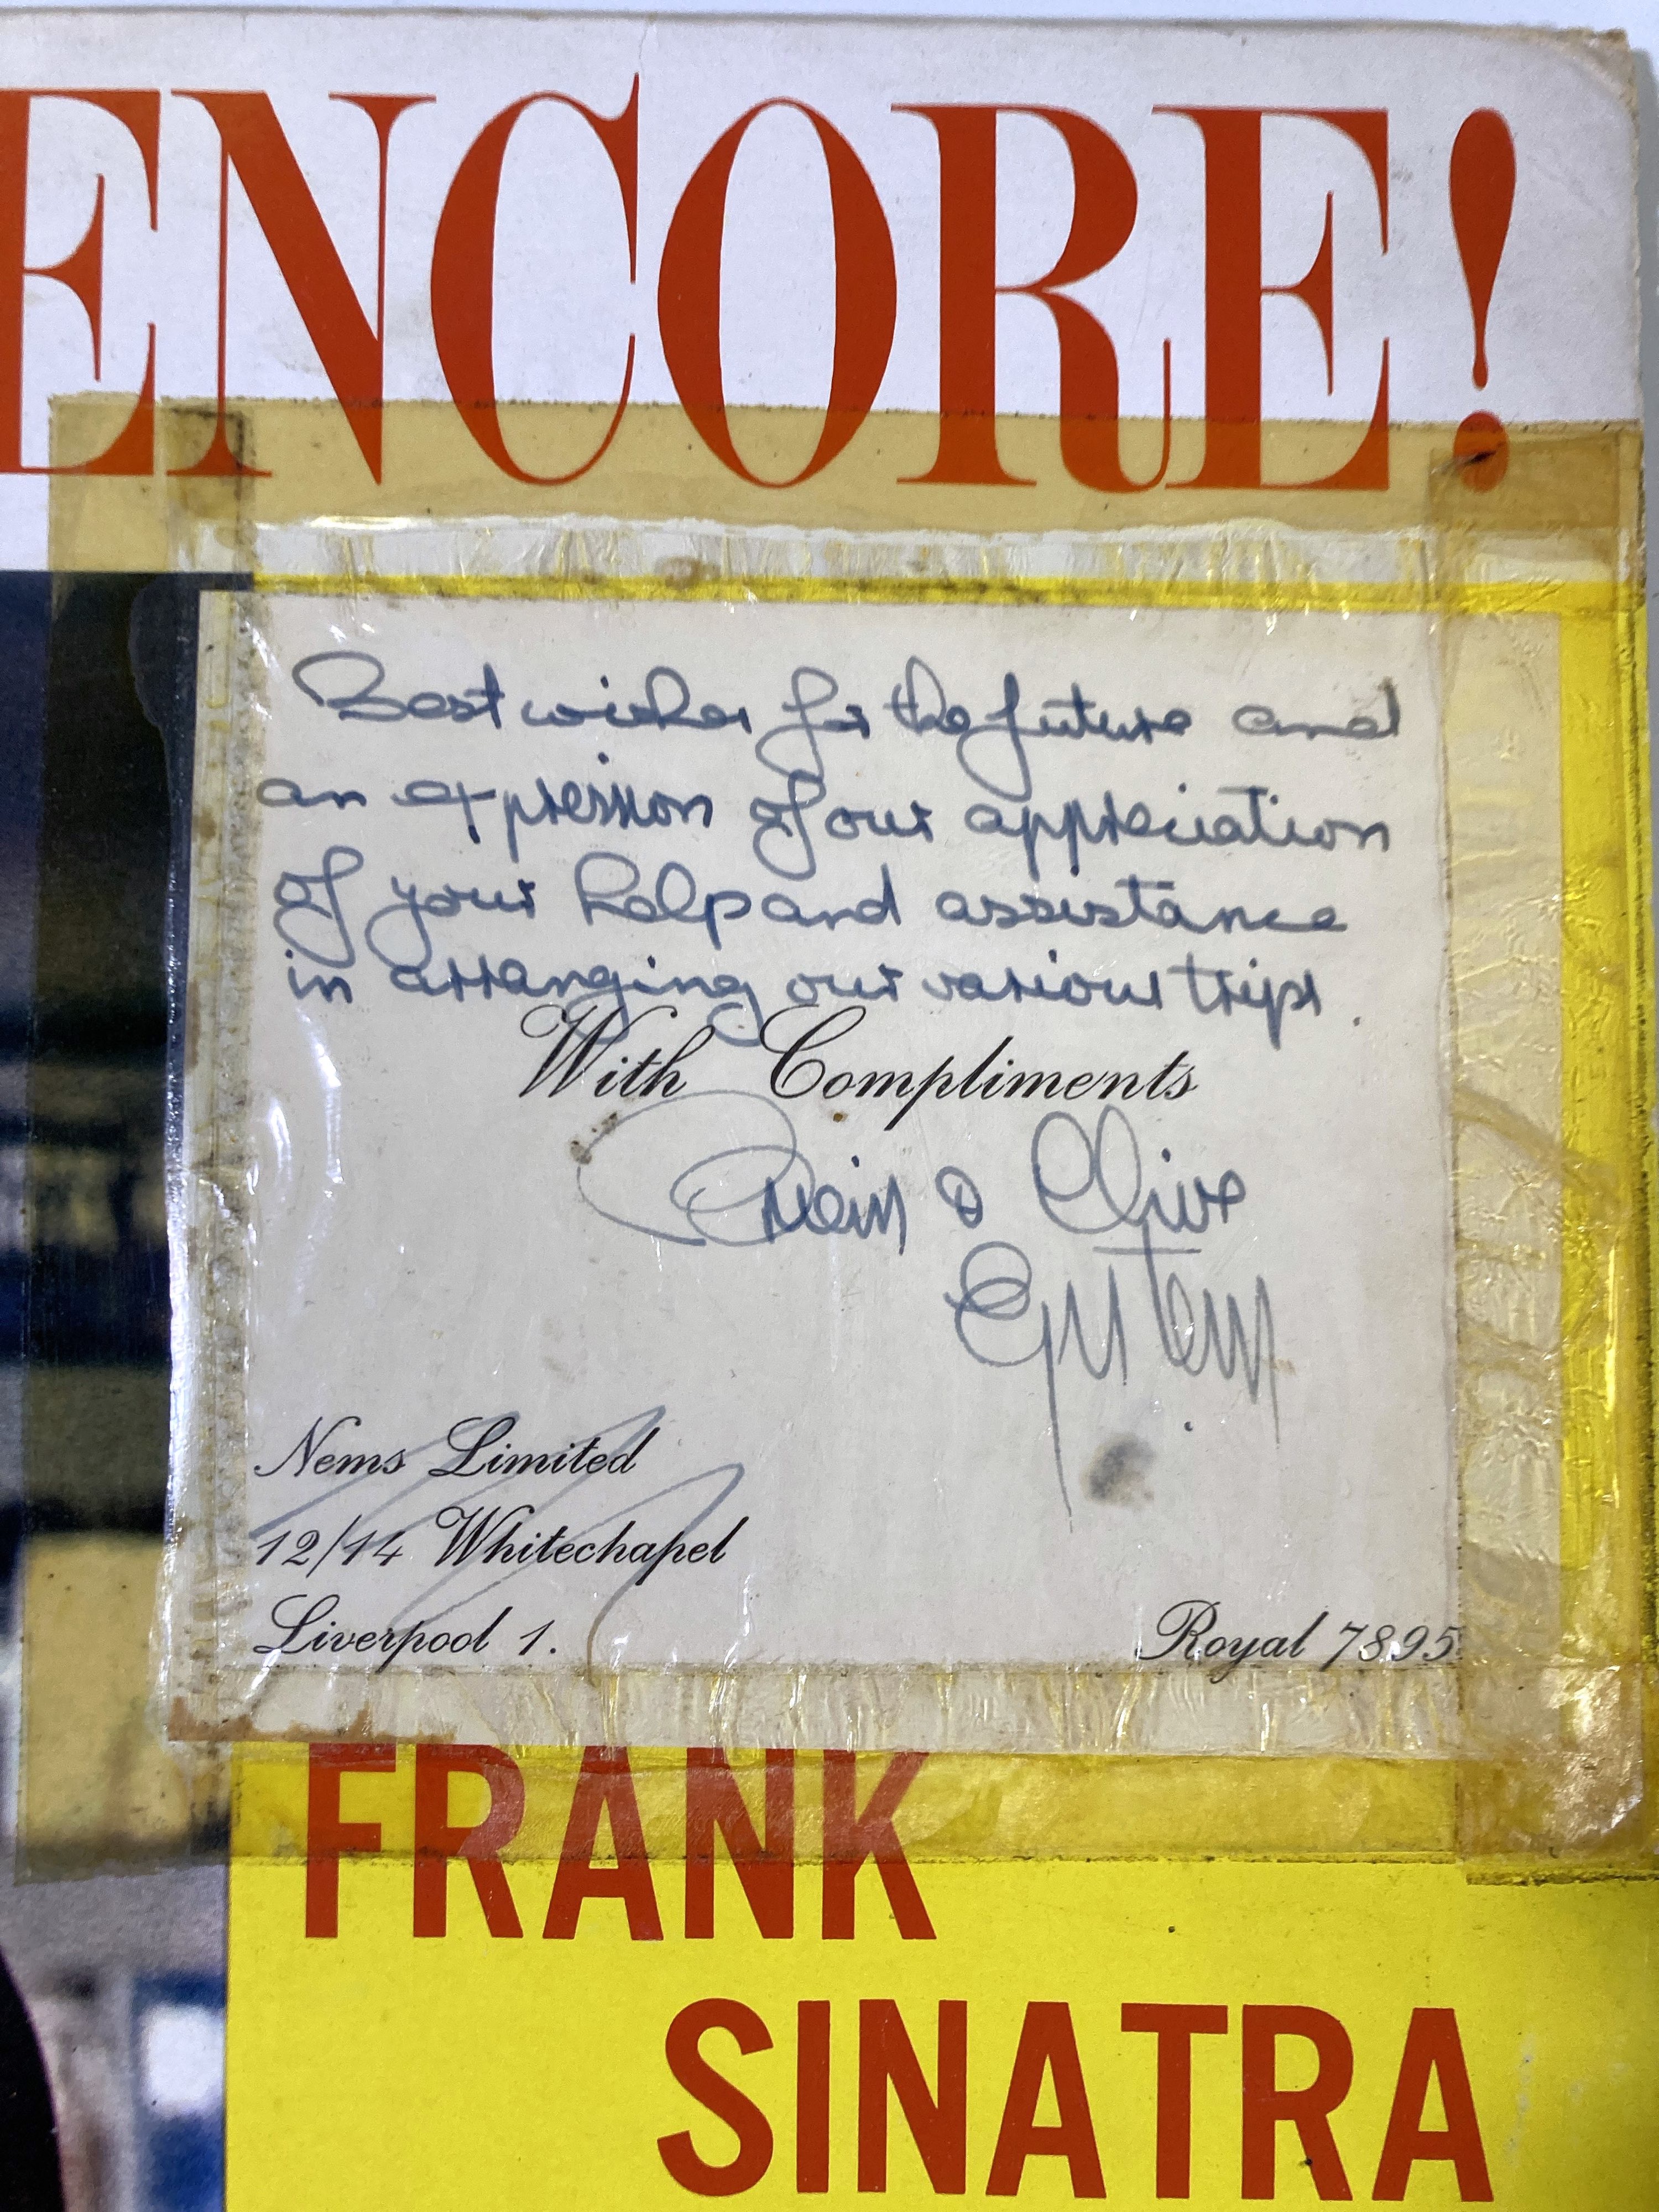 ENCORE!
Best wishes for the future and
an expression of our appreciation
of your help and assistance
in arranging our various trips.
With Compliments
Brian & Clive
Epstein
Nems Limited
12/14 Whitechapel
Liverpool 1.
Royal 7895
FRANK
SINATRA